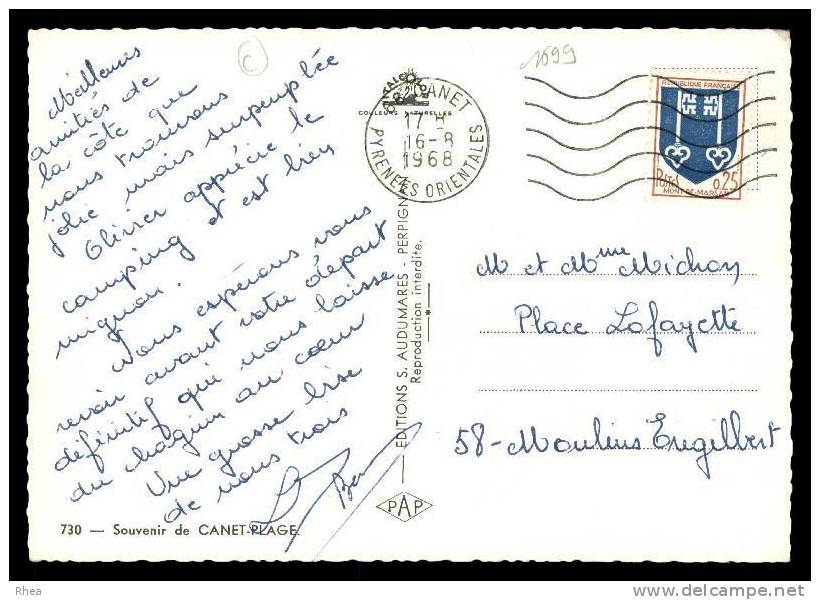 Meilleures
amitiés de
la côte que
nous trouvons
jolie mais surpeuplée
Olivier apprécie le
camping et est bien
mignon.
Nous espérons vous
revoir avant votre départ
définitif qui nous laisse
du chagrin au cœur
Une grosse bise
de nous trois
730 — Souvenir de CANET-PLAGE.
C
COULEURS NATURELLES
CANET
17 H
16-8
1968
PYRENEES ORIENTALES
EDITIONS S. AUDUMARES - PERPIGNAN
Reproduction interdite.
PAP
1699
REPUBLIQUE FRANÇAISE
POSTES 0,25
MONT-DE-MARSAN
M et Mme Michon
Place Lafayette
58-Moulins Engilbert
Rhea
www.delcampe.net